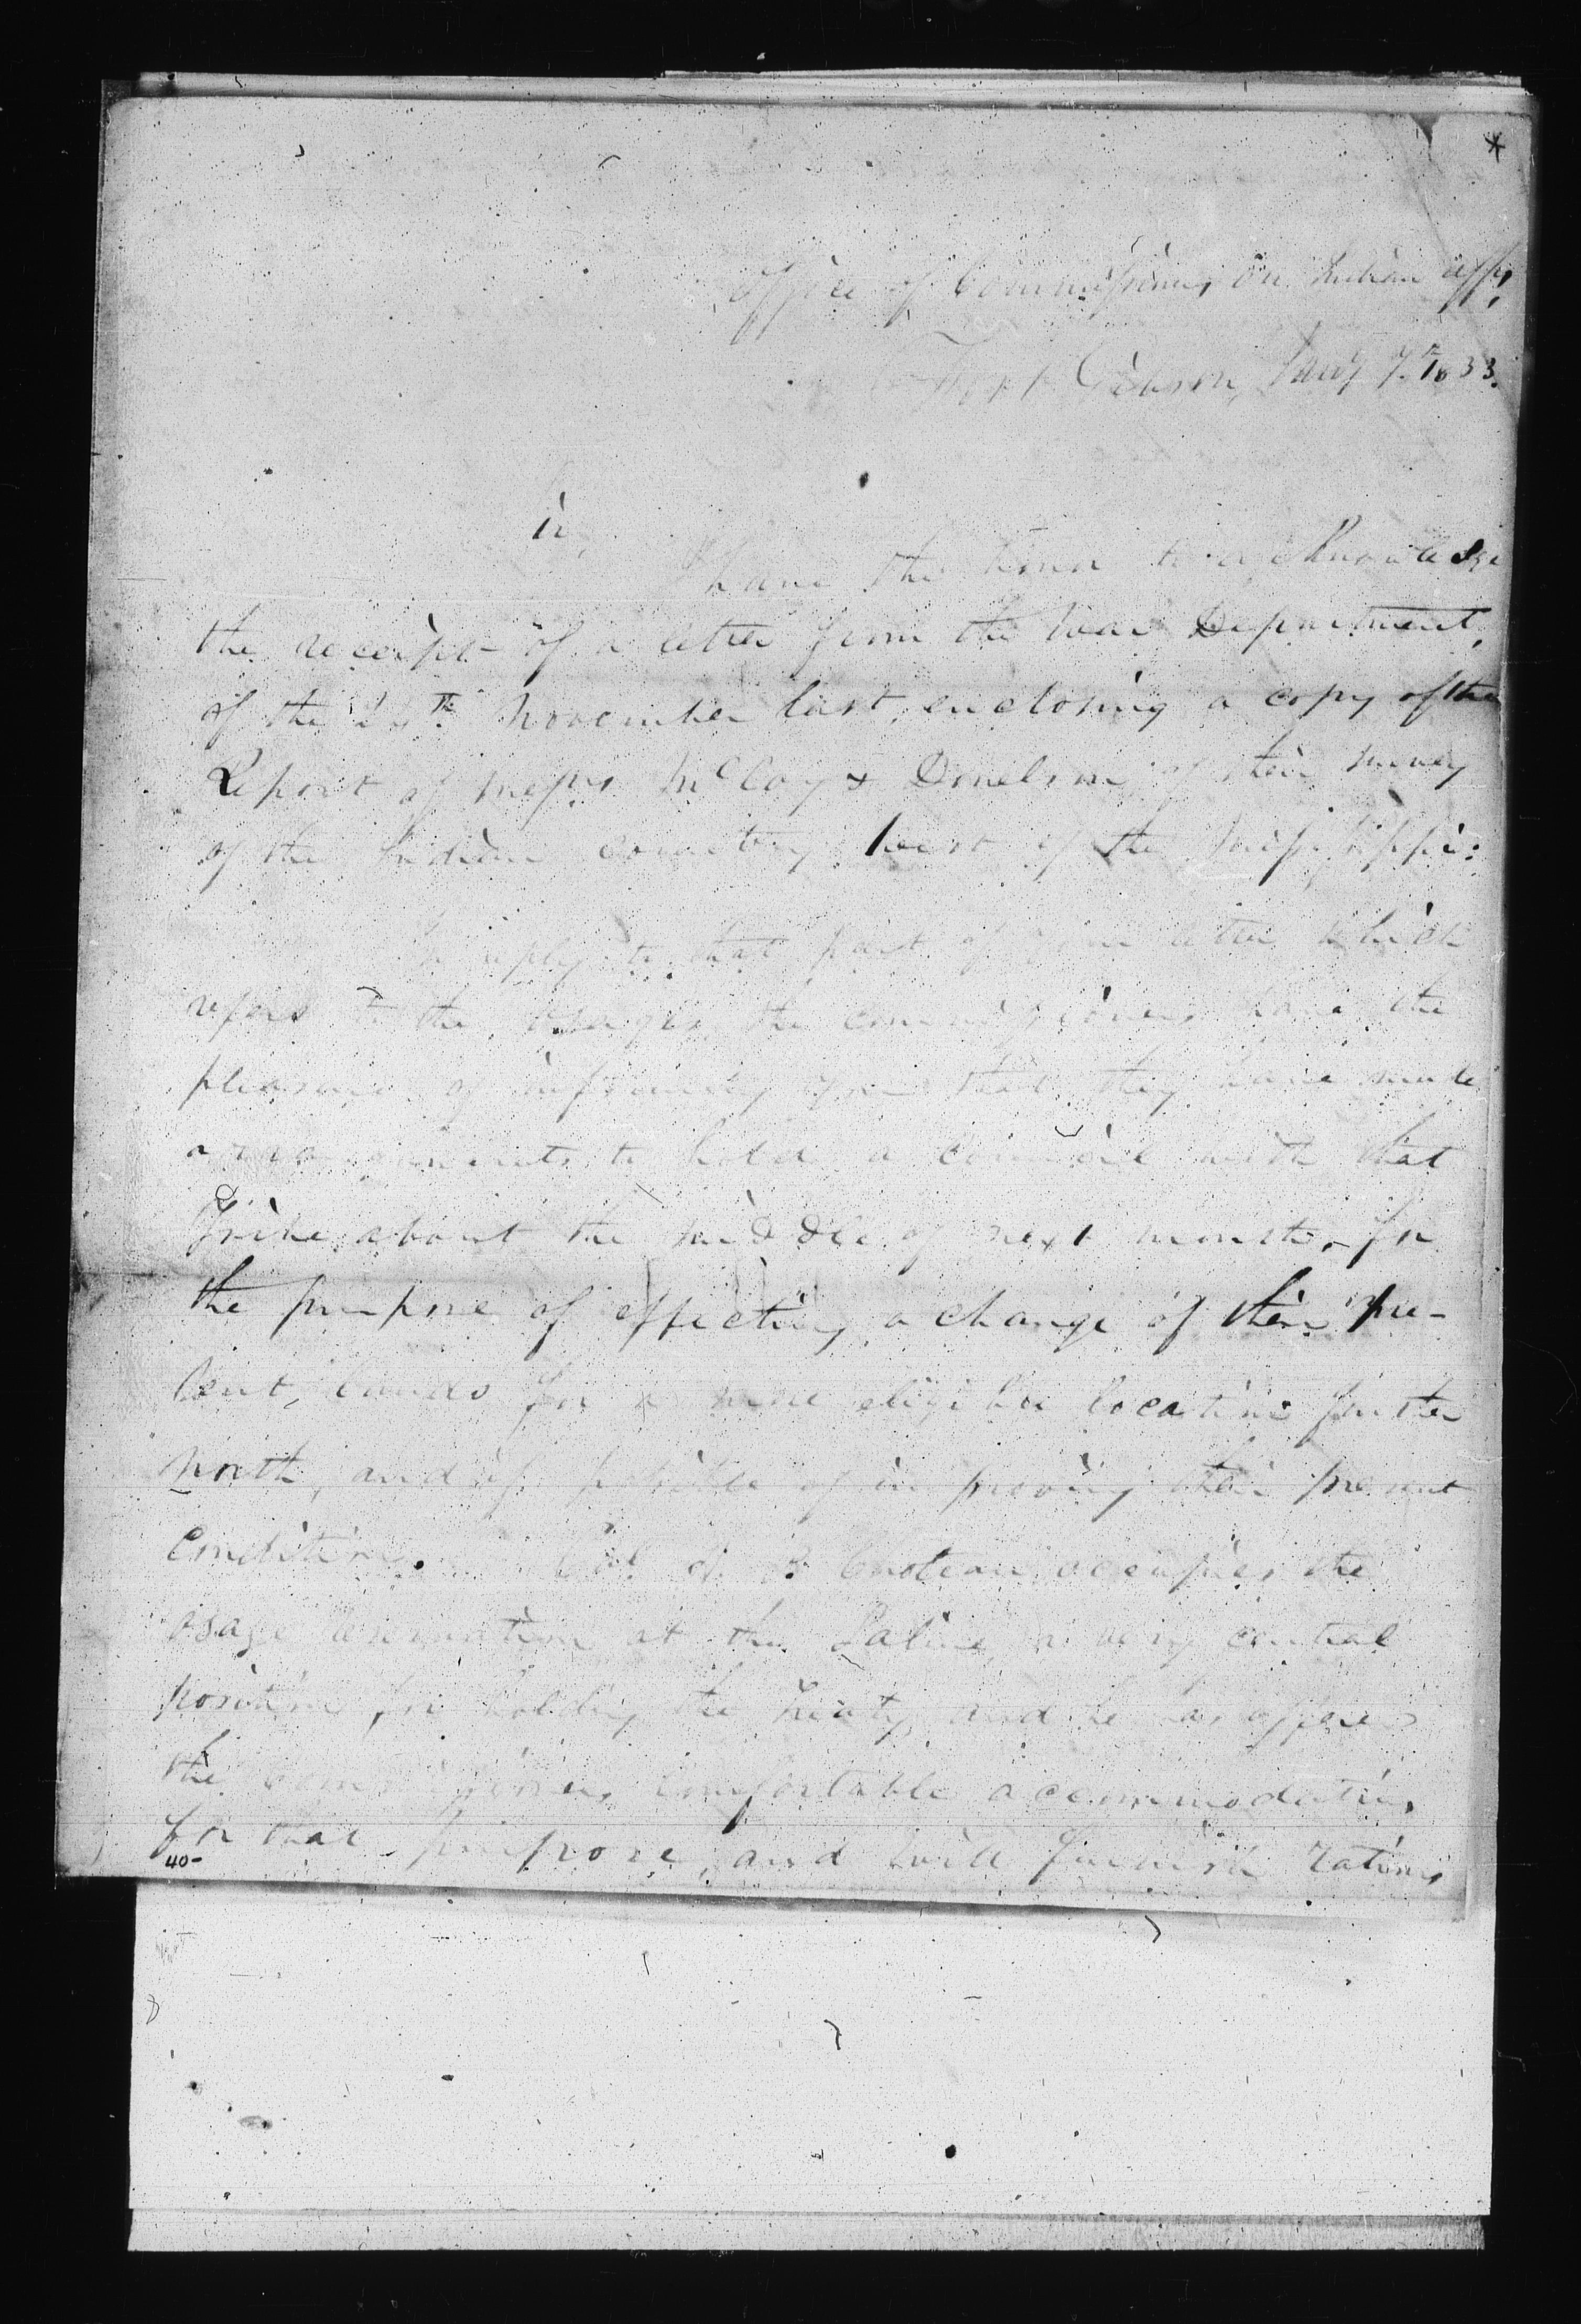 *
Office of Commissioners on Indian Affs,
Fort Gibson, Jany 7th 1833.
ir,
I have the honor to acknowledge
the receipt of a letter from the War Department,
of the November last, enclosing a copy of the
Report of Messrs McCoy & Donelson, of their survey
of the Indian country West of the Mississippi:
In reply to that part of your letter which
refers to the Osages, the commissioners have the
pleasure of informing you that they have made
arrangements to hold a Council with that
Tribe about the middle of next month, for
the purpose of effecting a change of their pre-
sent, lands for a more eligible location further
north, and if possible of improving their present
Condition. Col. A. P. Choteau occupies the
Osage reservation at the Saline, a very central
position for holding the treaty, and he has offered
the commissioners comfortable accommodations
for that purpose, and will furnish rations
40-